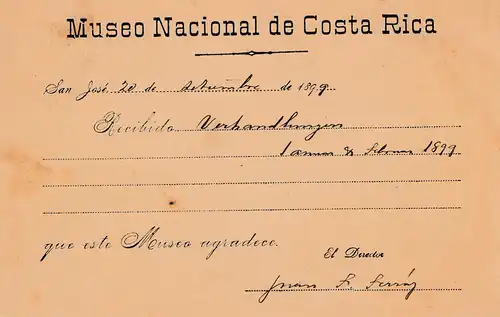 Museo Nacional de Costa Rica
San José 20 de setiembre de 1899.
Recibido Verhandlungen
Januar & Februar 1899
que este Museo agradece.
El Director
Juan F. Ferráz